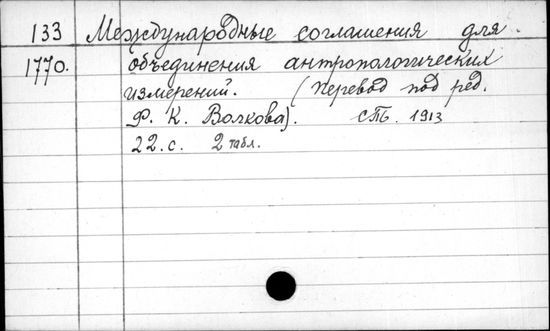 133 Международные соглашения для
1770. объединения антропологических
измерений. (перевод под ред.
Ф. К. Волкова). СПб. 1913
22. с. 2 табл.